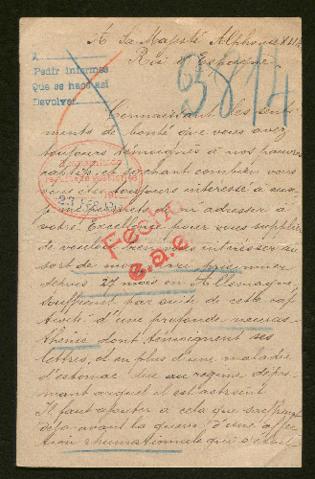 A Sa Majesté Alphonse XIII
Roi d'Espagne
3814
A
Pedir informes
Que se hace así
Devolver.
Connaissant les senti-
ments de bonté que vous avez
toujours témoignés à nos pauvres
captifs, et sachant combien vous
vous êtes toujours intéressé à eux,
je me permets de m'adresser à
votre Excellence pour vous supplier
de vouloir bien vous intéresser au
sort de mon mari prisonnier
depuis 29 mois en Allemagne,
souffrant par suite de cette cap
tivité d'une profonde neuras
thénie dont témoignent ses
lettres, et en plus d'une maladie
d'estomac due au régime dépri-
mant auquel il est astreint
Il faut ajouter à cela que souffrant
déjà avant la guerre d'une affec
tion rhumatismale qui s'était
23 FEB
Fecho
e.a.e